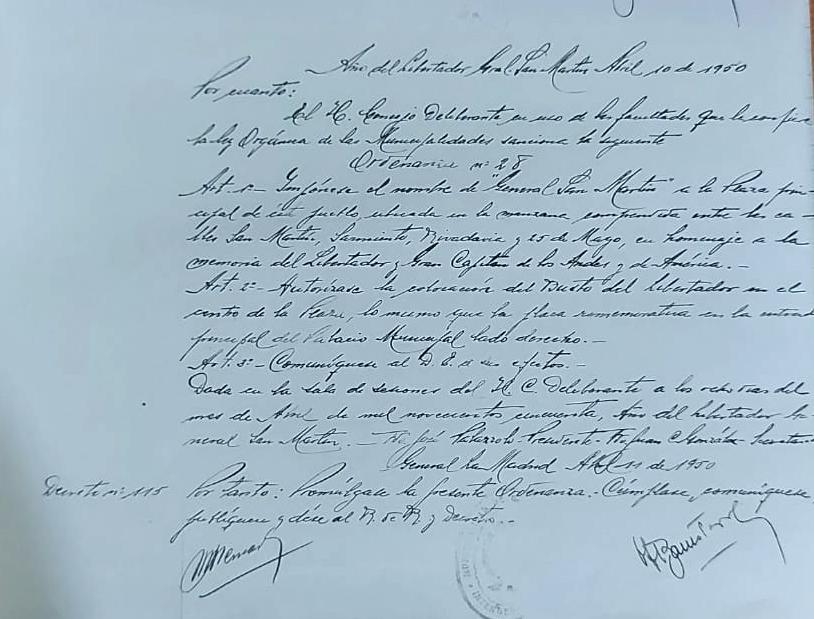 Año del Libertador Gral. San Martín Abril 10 de 1950
Por cuanto:
El H. Concejo Deliberante en uso de las facultades que le confiere
la ley Orgánica de las Municipalidades sanciona la siguiente
Ordenanza nº 28
Art. 1º- Impónese el nombre de "General San Martín" a la Plaza prin-
cipal de éste pueblo, ubicada en la manzana, comprendida entre las ca-
lles San Martín, Sarmiento, Rivadavia y 25 de Mayo, en homenaje a la
memoria del Libertador y Gran Capitán de los Andes y de América.-
Art. 2º- Autorízase la colocación del Busto del Libertador en el
centro de la Plaza, lo mismo que la placa rememorativa en la entrada
principal del Palacio Municipal lado derecho.-
Art. 3º- Comuníquese al D. E. a sus efectos.-
Dada en la sala de sesiones del H. C. Deliberante a los ocho días del
mes de Abril de mil novecientos cincuenta, Año del Libertador Ge-
neral San Martín.- Fdo José - Presidente - Fdo Juan C González - Secretario
General La Madrid Abril 11 de 1950
Decreto nº 115 Por tanto: Promúlgase la presente Ordenanza.- Cúmplase, comuníquese,
publíquese y dése al R. de R. y Decreto.-